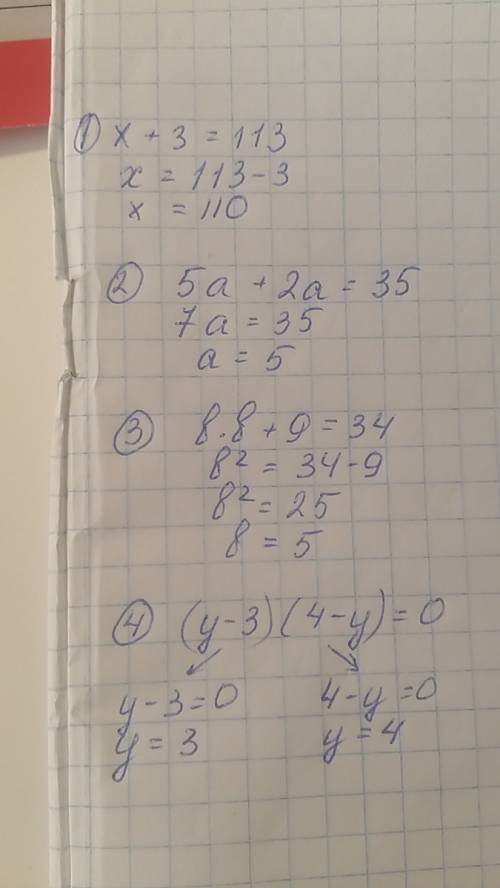 ① x + 3 = 113
x = 113 - 3
x = 110
② 5a + 2a = 35
7a = 35
a = 5
③ в · в + 9 = 34
в² = 34 - 9
в² = 25
в = 5
④ (y - 3)(4 - y) = 0
y - 3 = 0 4 - y = 0
y = 3 y = 4